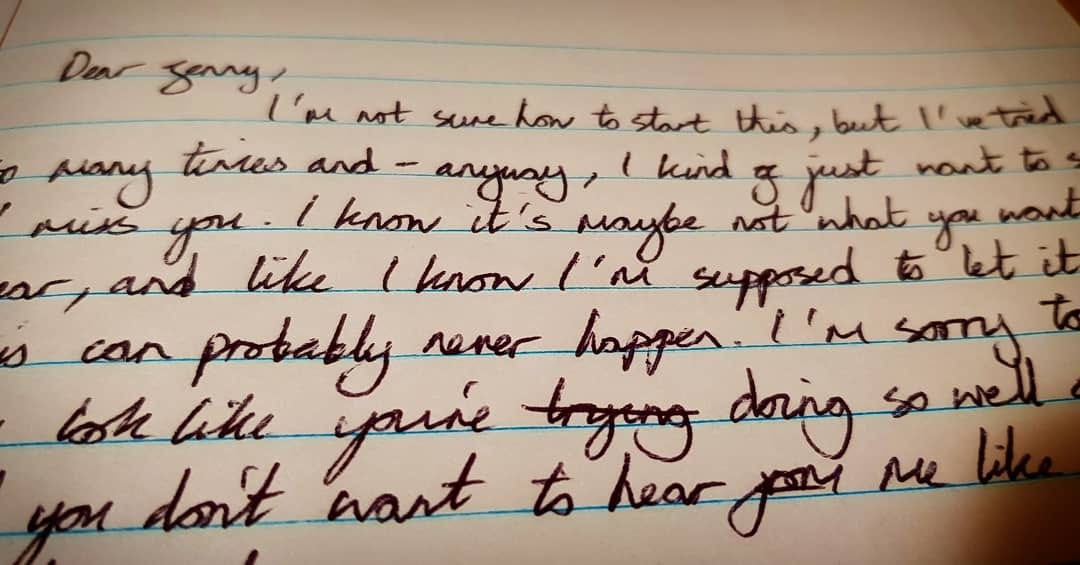 Dear Jenny,
I'm not sure how to start this, but I've tried
o many times and - anyway, I kind of just want to s
miss you. I know it's maybe not what you want
ear, and like I know I'm supposed to let it
is can probably never happen. I'm sorry to
look like you're trying doing so well
you don't want to hear me like